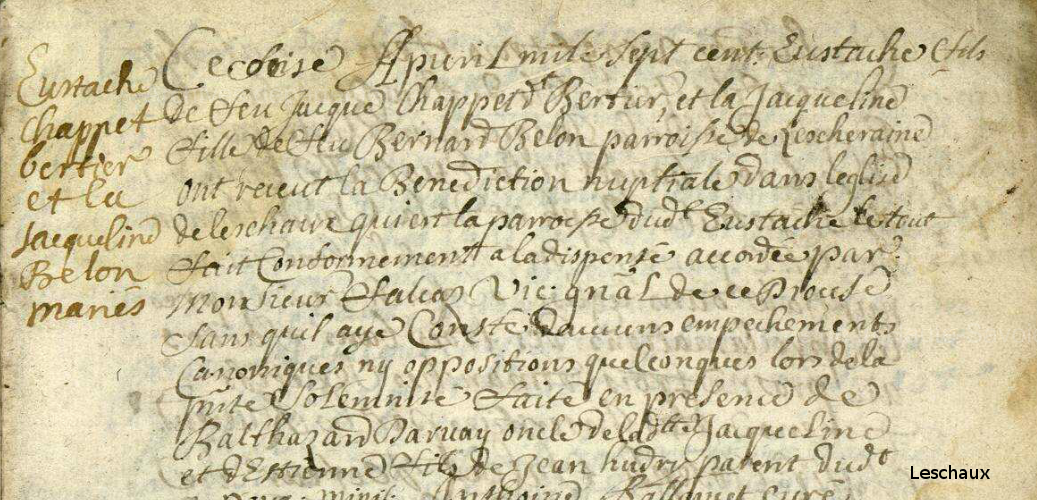 Eustache
Chappet
bertier
et la
Jacqueline
Belon
mariés
Ce douse Appvril mile sept cent Eustache fils
de feu Jacque Chappet dt Bertier, et la Jacqueline
fille de feu Bernard Belon parroisse de Leocheraine
ont receut la Benediction nuptiale dans leglise
de leschaux qui est la parroisse dudt Eustache le tout
fait Conformement a la dispense accordée par
Monsieur falcoz Vic: gnâl de ce Diocese
sans quil aye Consté daucuns empechements
Canoniques ny oppositions quelconques lors de la
pnte Solemnité faite en presence de
Balthazard Daruay oncle de ladtte Jacqueline
et dEttienne fils de Jean hudry parent dudt
Leschaux